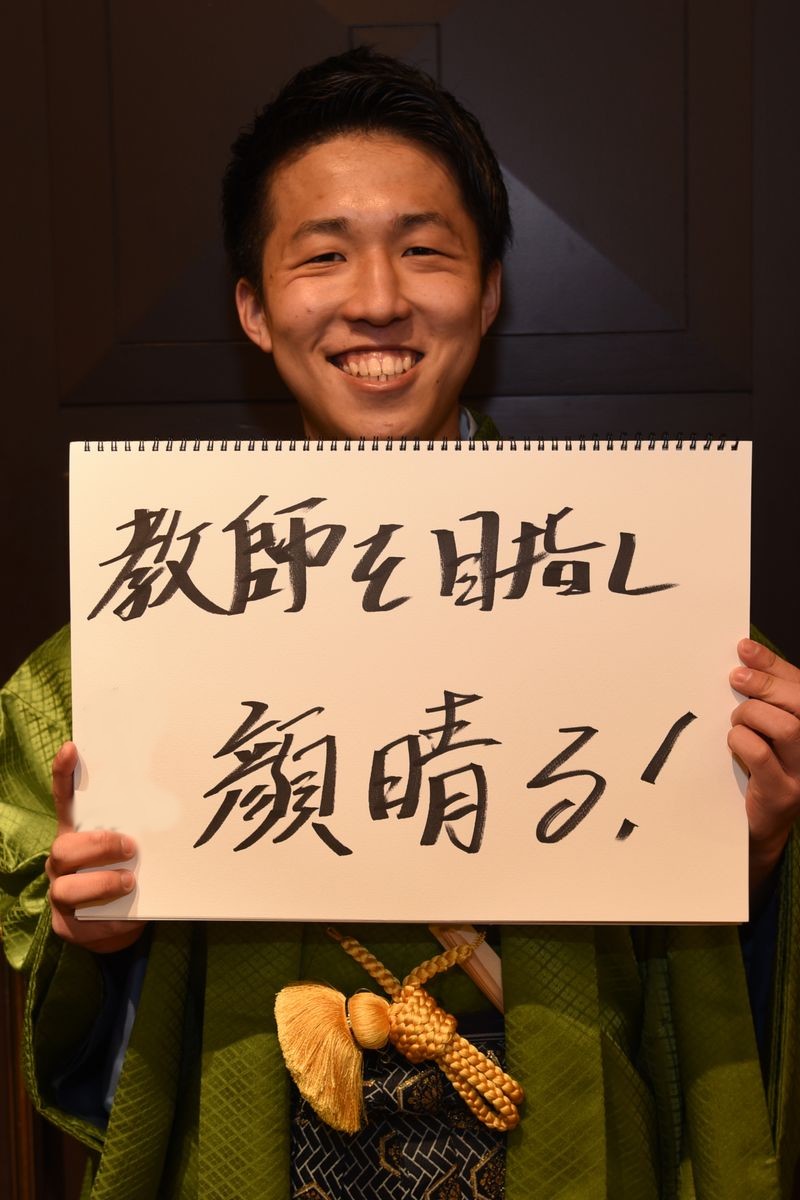 教師を目指し
顔晴る!